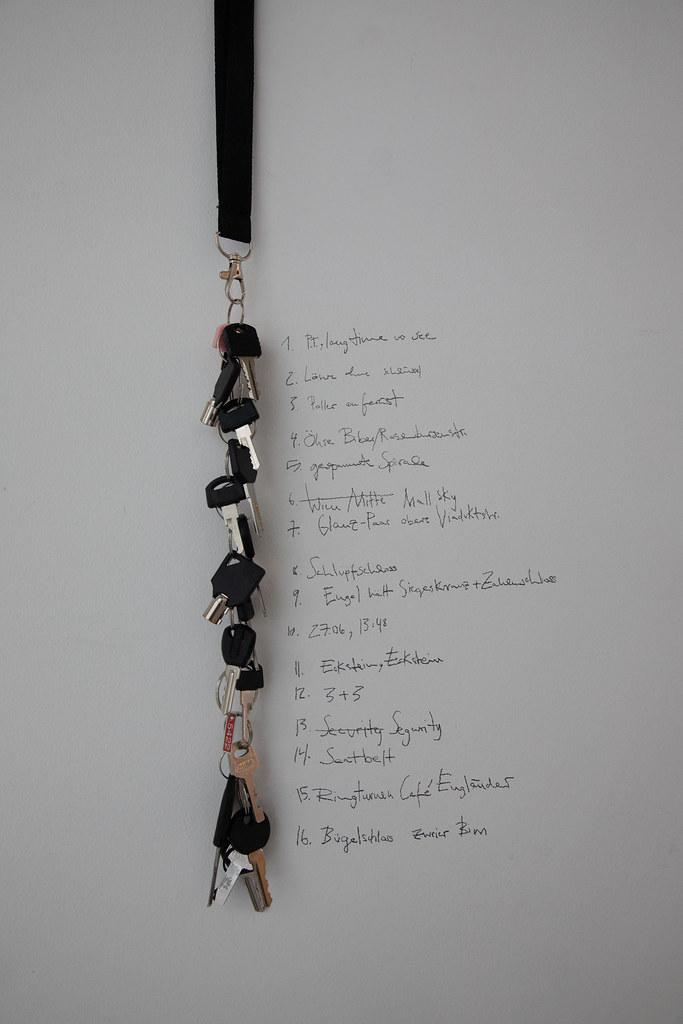 1. P.F., long time no see
2. Löwe ohne
3 Poller entfernt
4. Öhre Biber/Rosenbursenstr.
5. gespannte Spirale
6. Wien Mitte Mall sky
7. Glanz-Paar obere Viaduktstr.
8. Schlupfschloss
9. Engel hält Siegeskranz + Zahlenschloss
10. 27.06, 13:48
11. Eckstein, Eckstein
12. 3+3
13. Security Segurity
14. Seatbelt
15. Ringturnen Café Engländer
16. Bügelschloss zweier Bim
5422